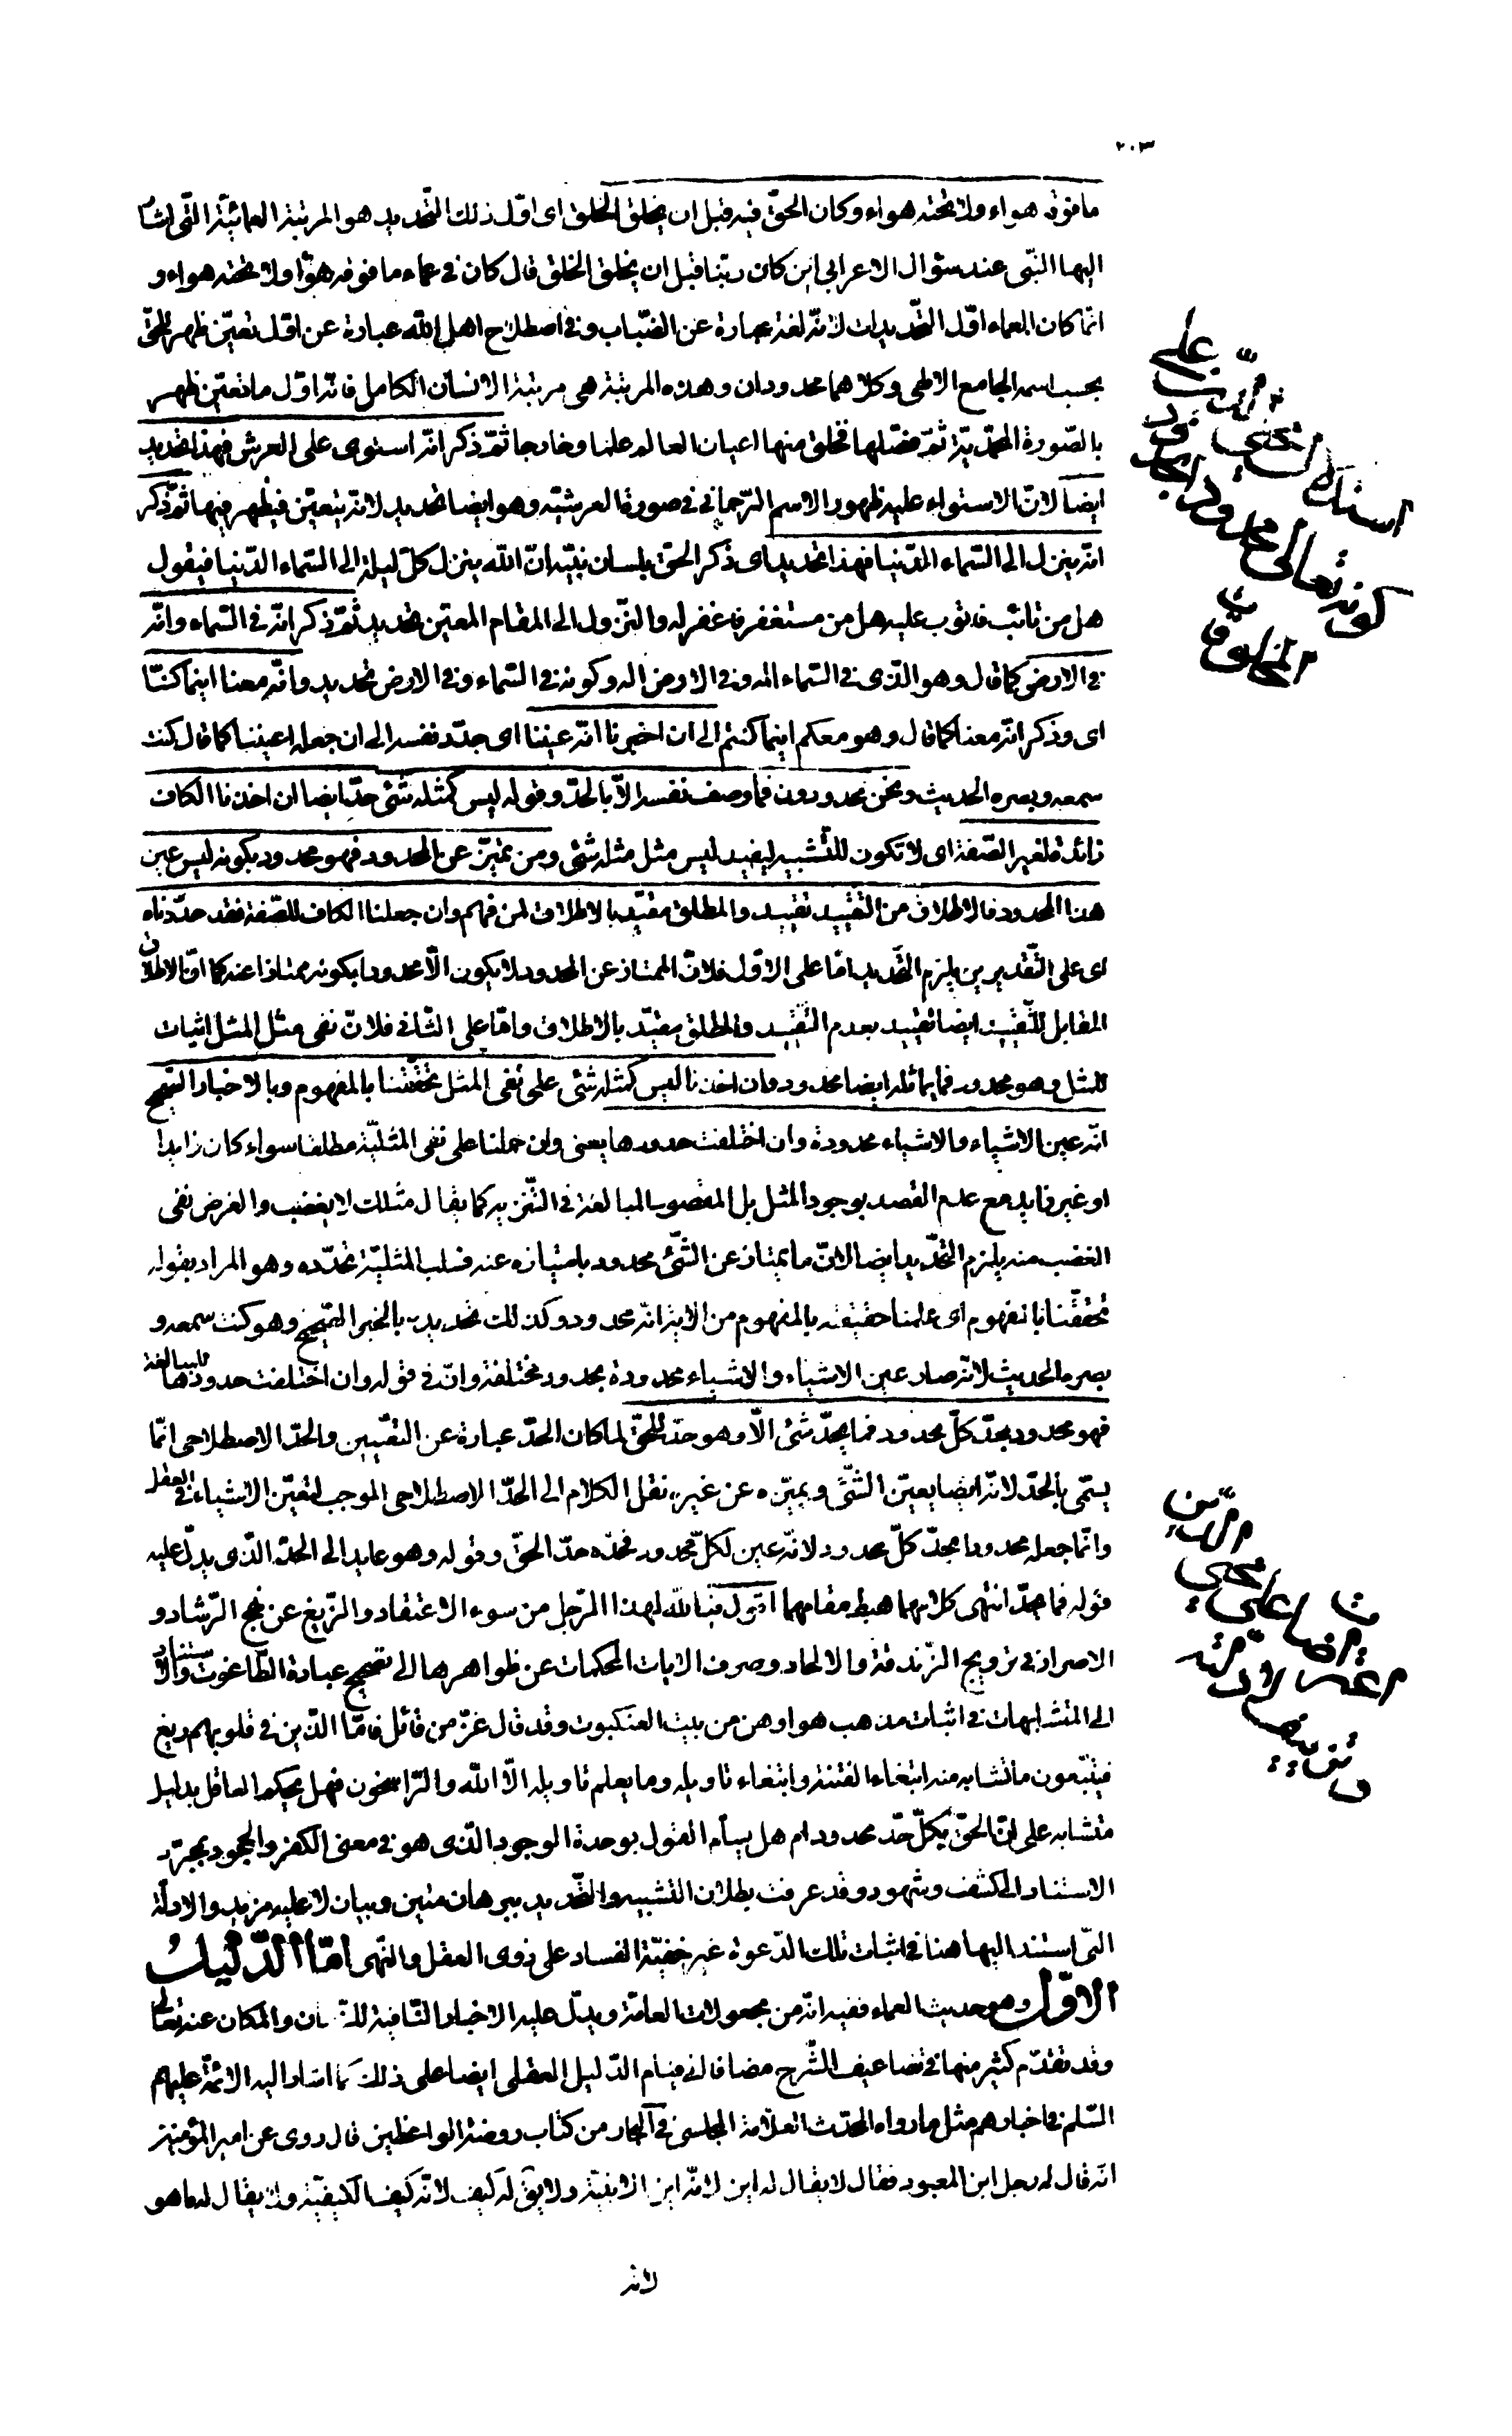 ٢٠٣
ما فوقه هواء ولا تحته هواء وكان الحقّ فيه قبل ان يخلق الخلق اى اوّل ذلك التّحديد هو المرتبة العمائيّة الّتى اشار
اليها النبّى عند سؤال الاعرابى اين كان ربّنا قبل ان يخلق الخلق قال كان فى عماء ما فوقه هوا ولا تحته هواء و
انّما كان العماء اوّل التّحديدات لانّه لغة عبارة عن الضّباب وفى اصطلاح اهل الله عبارة عن اوّل تعيّن ظهر للحقّ
بحسب اسمه الجامع الالهى وكلاهما محدودان وهذه المرتبة هى مرتبة الانسان الكامل فانّه اوّل ما تعيّن ظهر
بالصّورة المحمّديّة ثمّ فصّلها فخلق منها اعيان العالم علما وخارجا ثمّ ذكر انّه استوى على العرش فهذا تحديد
ايضا لانّ الاستواء عليه ظهور الاسم الرّحمانى فى صورة العرشيّه وهو ايضا تحديد لانّه يتعيّن فيظهر فيها ثمّ ذكر
انّه ينزل الى السّماء الدّنيا فهذا تحديد اى ذكر الحق بلسان نبيّه انّ الله ينزل كلّ ليلة الى السّماء الدّنيا فيقول
هل من تائب فاتوب عليه هل من مستغفر فاغفر له والنّزول الى المقام المعيّن تحديد ثمّ ذكر انّه فى السّماء وانّه
فى الارض كما قال وهو الّذى فى السّماء اله وفى الارض اله وكونه فى السّماء وفى الارض تحديد وانّه معنا اينما كنّا
اى وذكر انّه معنا كما قال وهو معكم اينما كنتم الى ان اخبرنا انّه عيننا اى حدّد نفسه الى ان جعله اعيننا كما قال كنت
سمعه وبصره الحديث ونحن محدودون فما وصف نفسه الاّ بالحدّ وقوله ليس كمثله شئ حدّ ايضا ان اخذنا الكاف
زائدة لغير الصّفة اى لا تكون للتّشبيه ليفيد ليس مثل مثله شئ ومن تميّز عن المحدود فهو محدود بكونه ليس عين
هذا المحدود فالاطلاق من التّقييد تقييد والمطلق مقيّد بالاطلاق لمن فهم وان جعلنا الكاف للصّفة فقد حدّدناه
اى على التّقديرين يلزم التّحديد امّا على الاوّل فلانّ الممتاز عن المحدود لا يكون الاّ محدودا بكونه ممتازا عنه كما انّ الاطلاق
المقابل للتّقييد ايضا تقييد بعدم التّقييد والمطلق مقيّد بالاطلاق وامّا على الثّانى فلانّ نفى مثل المثل اثبات
للمثل وهو محدود فما يماثله ايضا محدود وان اخذنا ليس كمثله شئ على نفى المثل تحقّقنا بالمفهوم وبالاخبار الصّحيح
انّه عين الاشياء والاشياء محدودة وان اختلفت حدودها يعنى وان حملنا على نفى المثليّة مطلقا سواء كان زايدا
او غير زايد مع عدم القصد بوجود المثل بل المقصود المبالغة فى التّنزيه كما يقال مثلك لا يغضب والغرض نفى
الغضب منه يلزم التّحديد ايضا لانّ ما يمتاز عن الشّئ محدود بامتيازه عنه فسلب المثليّة تحدّده وهو المراد بقوله
تحقّقنا بالمفهوم اى علمنا حقيقة بالمفهوم من الاية انّه محدود وكذلك تحديد بالخبر الصّحيح وهو كنت سمعه و
بصره الحديث لانّه صار عين الاشياء والاشياء محدودة بحدود مختلفة وانّ فى قوله وان اختلفت حدودها للمبالغة
فهو محدود بحدّ كلّ محدود فما يحدّ شئ الاّ وهو حدّ للحقّ لما كان الحدّ عبارة عن التّعيين والحدّ الاصطلاحى انّما
يسمّى بالحدّ لانّه ايضا يعيّن الشّئ ويميّزه عن غيره نقل الكلام الى الحدّ الاصطلاحى الموجب لتعيّن الاشياء فى العقل
وانّما جعله محدودا بحدّ كلّ محدود لانّه عين لكلّ محدود فحدّه حدّ الحقّ وقوله وهو عايد الى الحدّ الّذى يدلّ عليه
قوله فما يحدّ انتهى كلامهما هبط مقامهما اقول فيا لله لهذا الرّجل من سوء الاعتقاد والزّيغ عن نهج الرّشاد و
الاصرار فى ترويج الزّندقة والالحاد وصرف الايات المحكمات عن ظواهرها الى تصحيح عبادة الطّاغوت والاستناد
الى المتشابهات فى اثبات مذهب هو اوهن من بيت العنكبوت وقد قال عزّ من قائل فامّا الّذين فى قلوبهم زيغ
فيتّبعون ما تشابه منه ابتغاء الفتنة وابتغاء تاويله وما يعلم تاويله الاّ الله والرّاسخون فهل يحكم العاقل بدليل
متشابه على انّ الحقّ بكلّ حدّ محدود ام هل يسلّم القول بوحدة الوجود الّذى هو فى معنى الكفر والجحود بمجرّد
الاستناد الى كشف وشهود وقد عرفت بطلان التّشبيه والتّحديد ببرهان متين وبيان لا عليه مزيد والادلّة
الّتى استند اليها هنا فى اثبات تلك الدّعوة غير خفيّة الفساد على ذوى العقل والنّهى امّا الدّليل
الاوّل وهو حديث العماء ففيه انّه من مجعولات العامّة ويدلّ عليه الاخبار النّافية للزّمان والمكان عنه تعالى
وقد تقدّم كثير منها فى تضاعيف الشّرح مضافا الى قيام الدّليل العقلى ايضا على ذلك كما اشار اليه الائمّة عليهم
السّلم فى اخبارهم مثل ما رواه المحدّث العلاّمة المجلسى فى البحار من كتاب روضة الواعظين قال روى عن امير المؤمنين
انّه قال له رجل اين المعبود فقال لا يقال له اين لانّه ايّن الاينيّة ولا يق له كيف لانّه كيّف الكيفيّة ولا يقال له ما هو
لانه
استدلال
على
كونه تعالى محدودا بحدود
المخلوقات
اعتراضات
على محيى الدّين